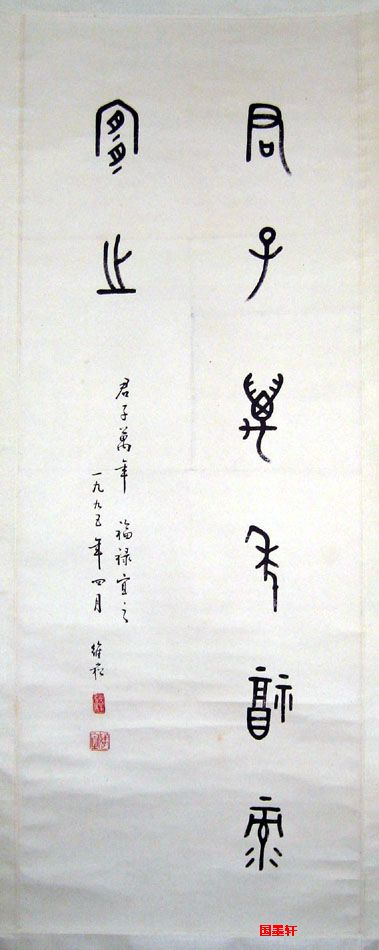 君子萬年福祿
宜之
君子萬年 福禄宜之
一九九五年四月 維崧
国墨轩